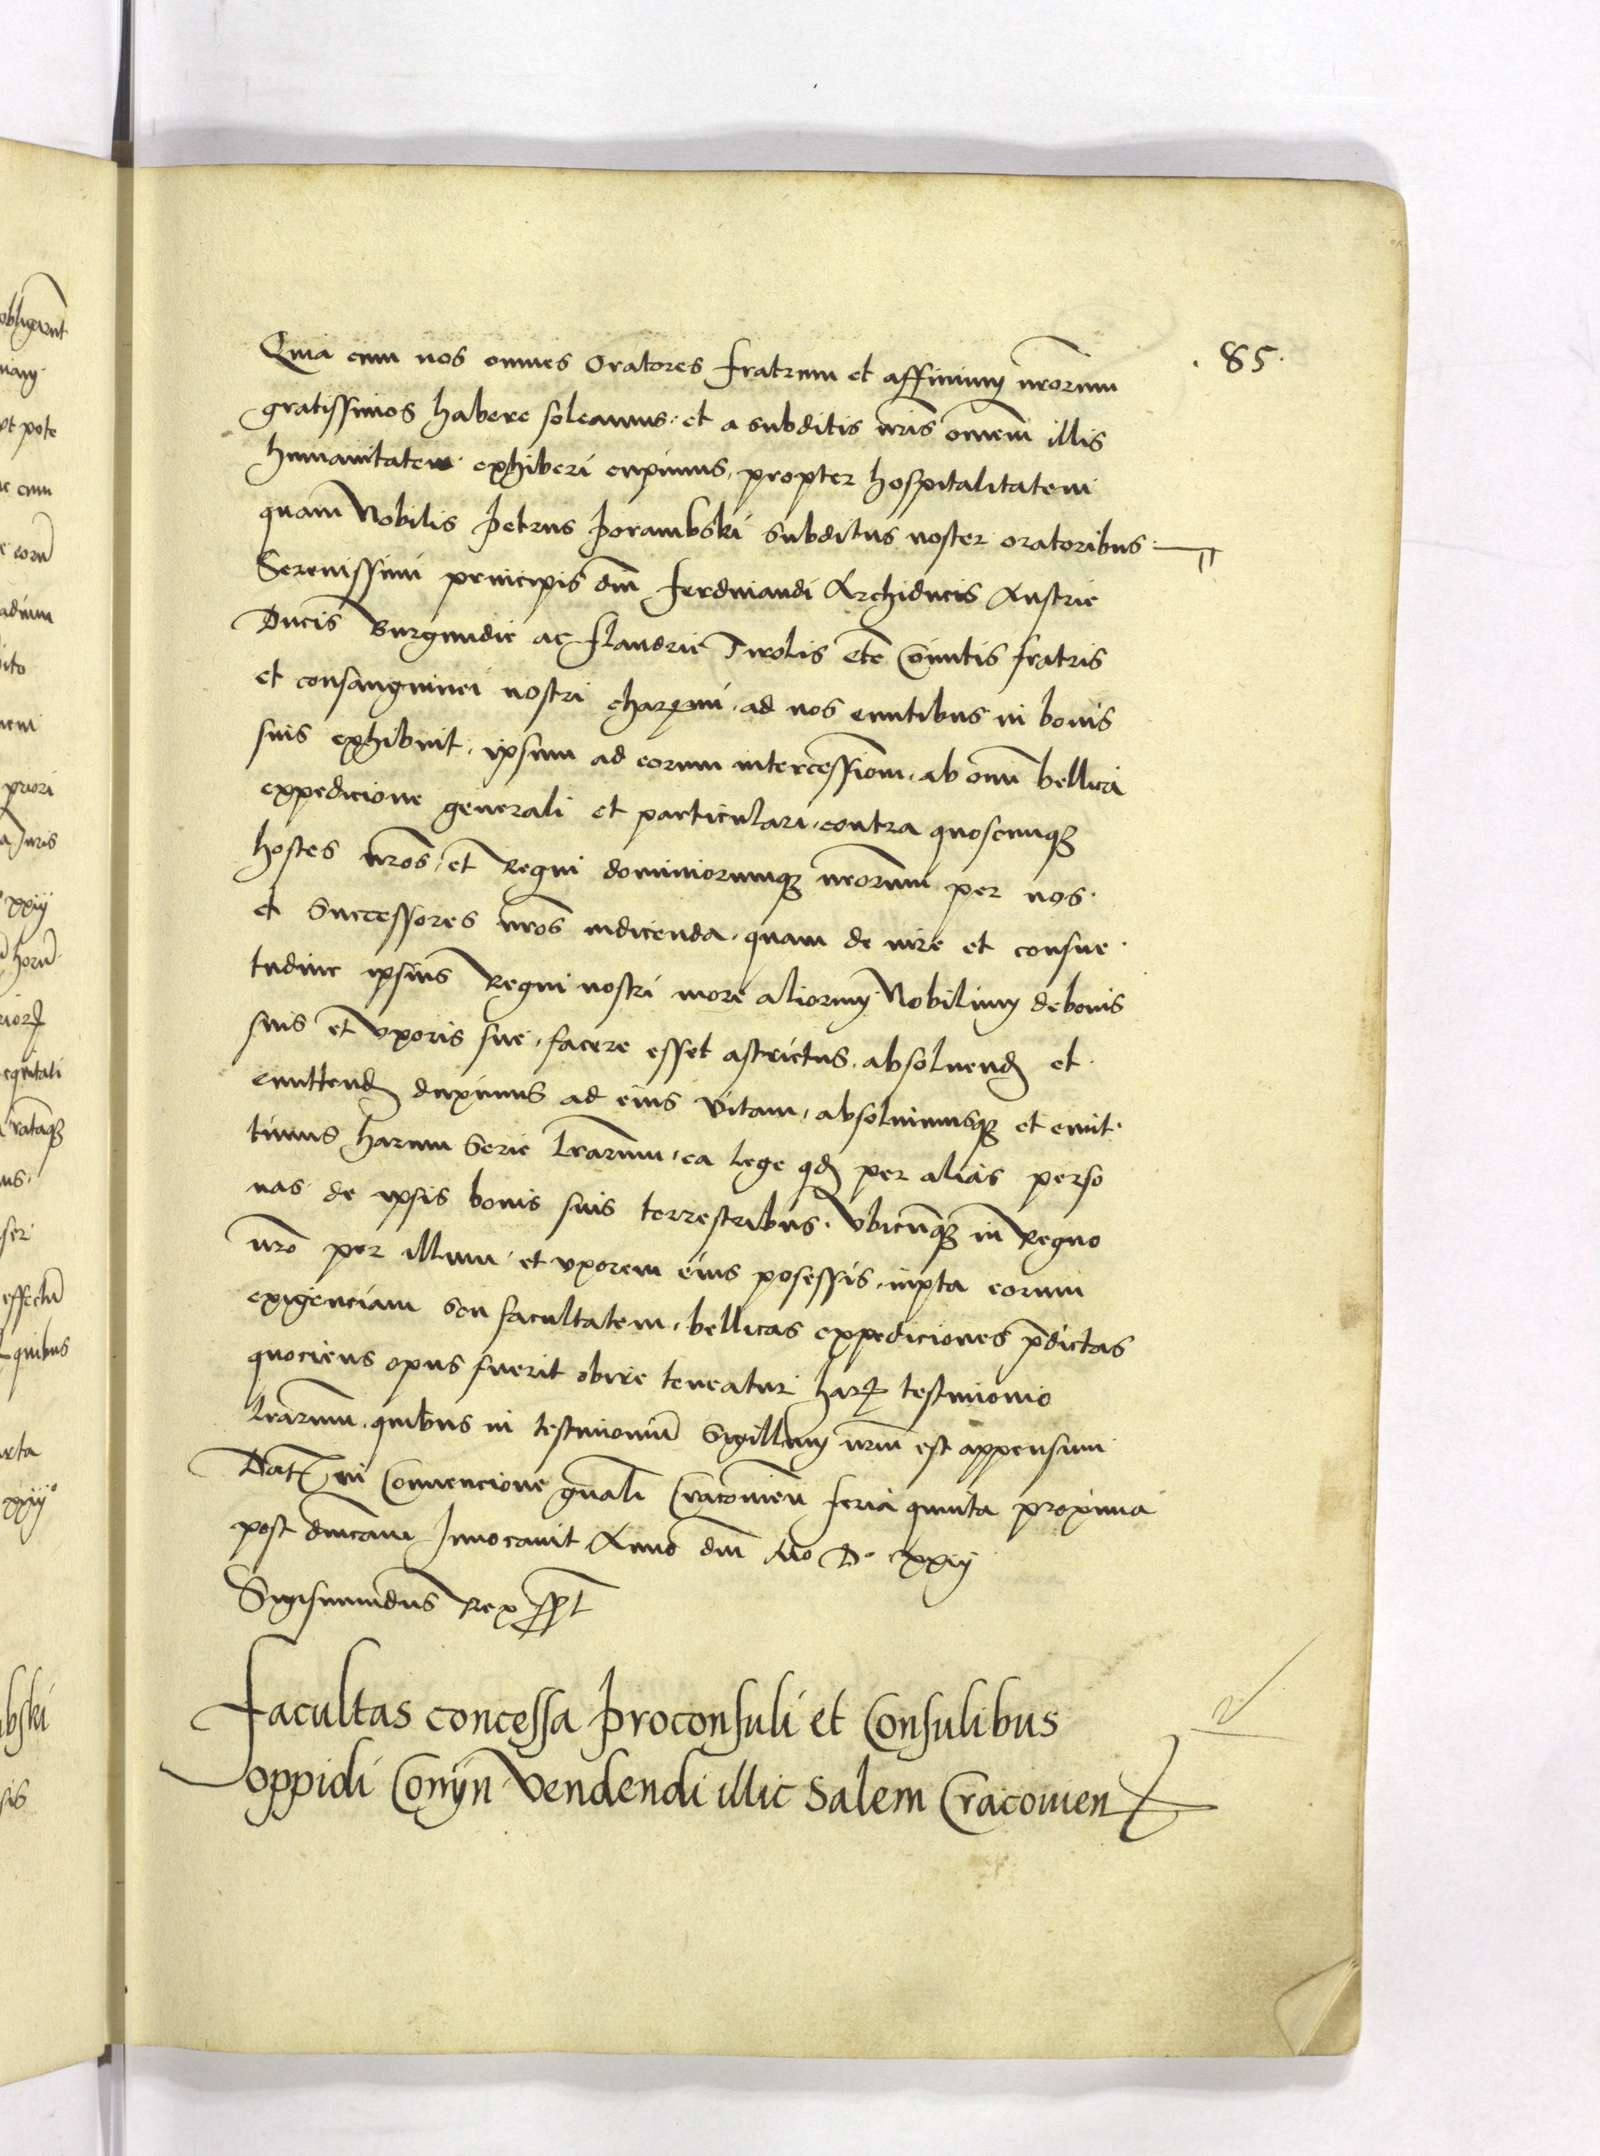 . 85 .
Quia cum nos omnes Oratores fratrum et affinium nrorum
gratissimos habere soleamus. et a subditis nris omnem illis
humanitatem exhiberi cupimus, propter hospitalitatem
quam Nobilis Petrus Porambski subditus noster oratoribus
Serenissimi principis dni Ferdinandi Archiducis Austrie
Ducis Burgundie ac Flandrie Tirolis etc Comitis fratris
et consanguinei nostri charmi, ad nos euntibus in bonis
suis exhibuit, ipsum ad eorum intercessionem, ab omni bellica
expedicione generali et particulari, contra quoscumque
hostes nros, et Regni dominiorumque nrorum per nos
et Successores nros indicenda, quam de iure et consue
tudine ipsius Regni nostri more aliorum Nobilium de bonis
suis et uxoris sue, facere esset astrictus, absoluend et
emittend duximus ad eius vitam, absoluimusque et emit
timus harum Serie lrarum, ea lege qd per alias perso
nas de ipsis bonis suis terrestribus. Vbicunque in Regno
nro per illum et vxorem eius posessis, iuxta eorum
exigenciam seu facultatem, bellicas expediciones pdictas
quociens opus fuerit obire teneatur har testimonio
lrarum, quibus in testimonium Sigillum nrum est appensum
Dat in Conuencione gnali Cracouien feria quinta proxima
post dnicam Inuocauit Anno dni Mo Do xxiij
Sigismundus Rex sspt
Facultas concessa Proconsuli et Consulibus
oppidi Conyn Vendendi illic Salem Cracouien